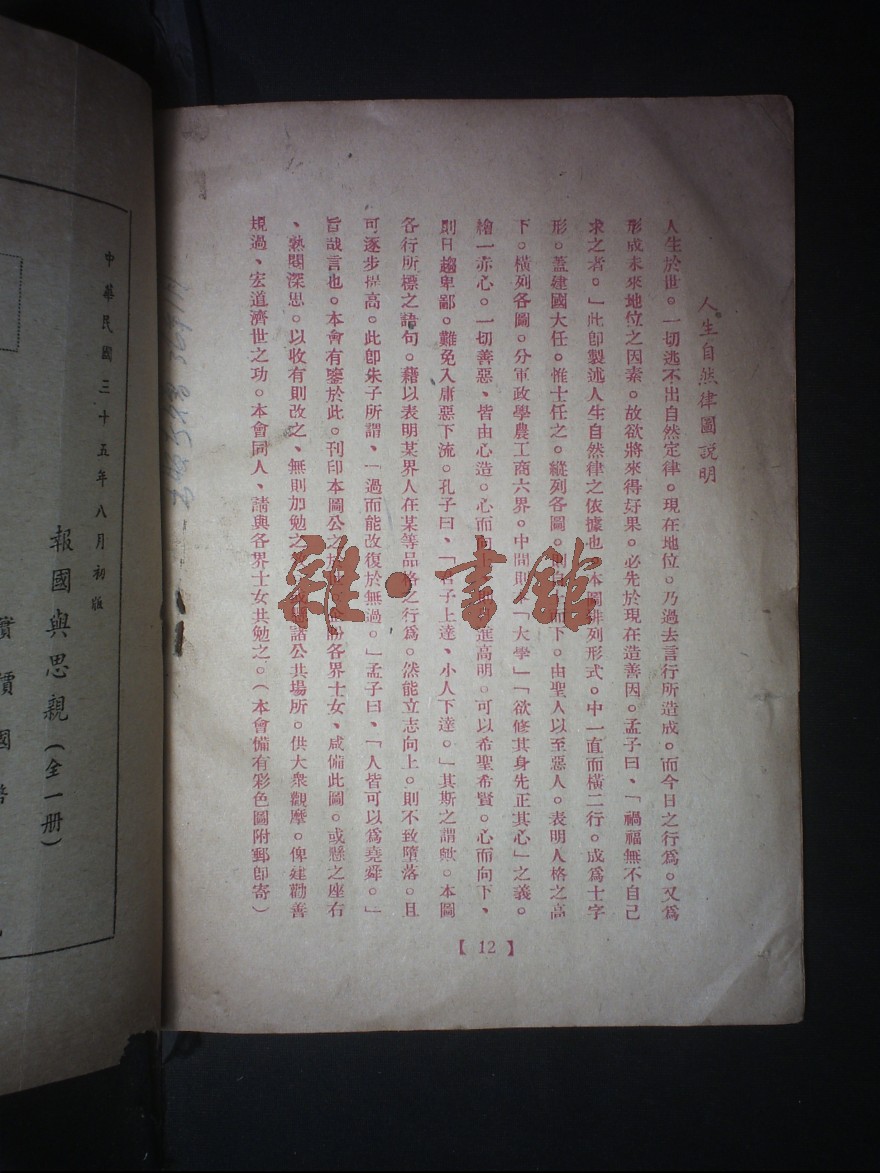 人生自然律圖說明
人生於世。一切逃不出自然定律。現在地位。乃過去言行所造成。而今日之行爲。又爲
形成未來地位之因素。故欲將來得好果。必先於現在造善因。孟子曰、「禍福無不自己
求之者。」此卽製述人生自然律之依據也。本圖排列形式。中一直而橫二行。成爲士字
形。蓋建國大任。惟士任之。縱列各圖。而下。由聖人以至惡人。表明人格之高
下。橫列各圖。分軍政學農工商六界。中間則「大學」「欲修其身先正其心」之義。
繪一赤心。一切善惡、皆由心造。心而向進高明。可以希聖希賢。心而向下、
則日趨卑鄙。難免入庸惡下流。孔子曰、「君子上達、小人下達。」其斯之謂歟。本圖
各行所標之語句。藉以表明某界人在某等品格之行爲。然能立志向上。則不致墮落。且
可逐步提高。此卽朱子所謂、「過而能改復於無過。」孟子曰、「人皆可以爲堯舜。」
旨哉言也。本會有鑒於此。刊印本圖公之於各界士女、咸備此圖。或懸之座右
、熱閱深思。以收有則改之、無則加勉之諸公共場所。供大衆觀摩。俾建勸善
規過、宏道濟世之功。本會同人、請與各界士女共勉之。（本會備有彩色圖附郵卽寄）
【 12 】
雜·書館
中華民國三十五年八月初版
報國與思親（全一册）
實價國幣